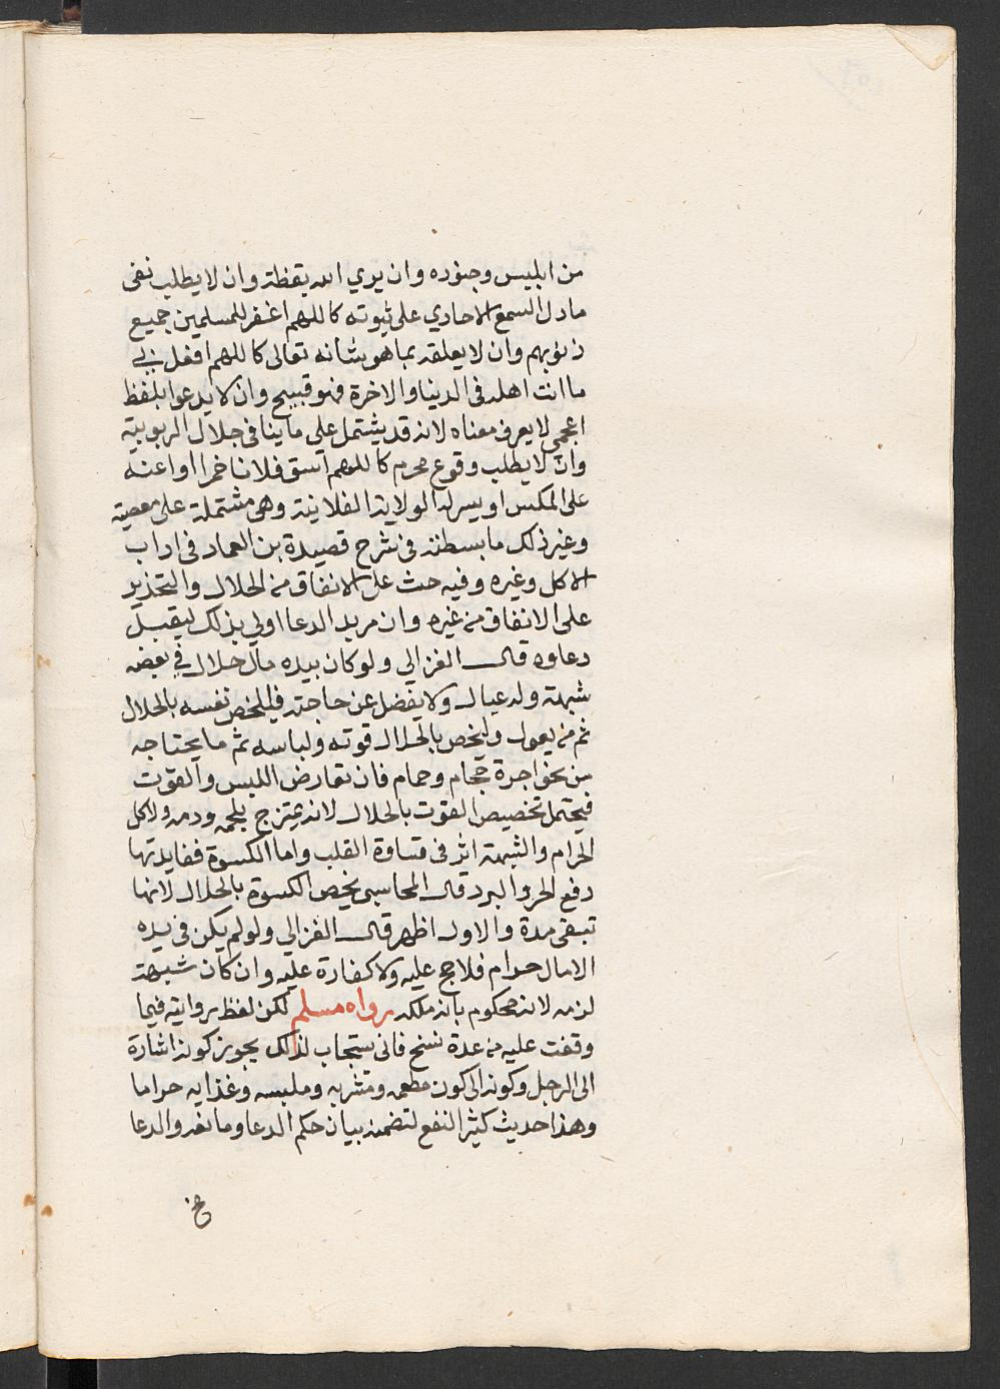 من ابليس وجنوده وان يري الله يقظة وان لا يطلب نفى
ما دل السمع الاحادي على ثبوته كاللهم اغفر للمسلمين جميع
ذنوبهم وان لا يعلقه بما هو شانه تعالى كاللهم افعل بي
ما انت اهله فى الدنيا والاخرة فهو قبيح وان لا يدعوا بلفظ
اعجمي لا يعرف معناه لانه قد يشتمل على ما ينافى جلال الربوبية
وان لا يطلب وقوع محرم كاللهم اسق فلانا خمرا او اعنه
على المكس او يسر له الولاية الفلانية وهى مشتملة على معصية
وغير ذلك ما بسطته فى شرح قصيدة بن العماد فى اداب
الاكل وغيره وفيه حث على الانفاق من الحلال والتحذير
على الانفاق من غيره وان مريد الدعا اولي بذلك ليقبل
دعاوه قال الغزالي ولو كان بيده مال حلال في بعضه
شبهة وله عيال ولا يفضل عن حاجته فليخص نفسه بالحلال
ثم من يعول وليخص بالحلال قوته ولباسه ثم ما يحتاجه
من نحو اجرة حجام وحمام فان تعارض اللبس والقوت
فيحتمل تخصيص القوت بالحلال لانه يمتزج بلحمه ودمه ولاكل
الحرام والشبهة اثر فى قساوة القلب واما الكسوة ففايدتها
دفع الحر والبرد قال المحاسبى يخص الكسوة بالحلال لانها
تبقى مدة والاول اظهر قال الغزالي ولو لم يكن فى يده
الا مال حرام فلا حج عليه ولا كفارة عليه وان كان شبهة
لزمه لانه محكوم بانه ملكه رواه مسلم لكن لفظ روايته فيما
وقفت عليه من عدة نسخ فانى يستجاب لذلك يجوز كونه اشارة
الى الرجل وكونه الى كون مطعمه ومشربه وملبسه وغذايه حراما
وهذا حديث كثير النفع لتضمنه بيان حكم الدعا ومانعه والدعا